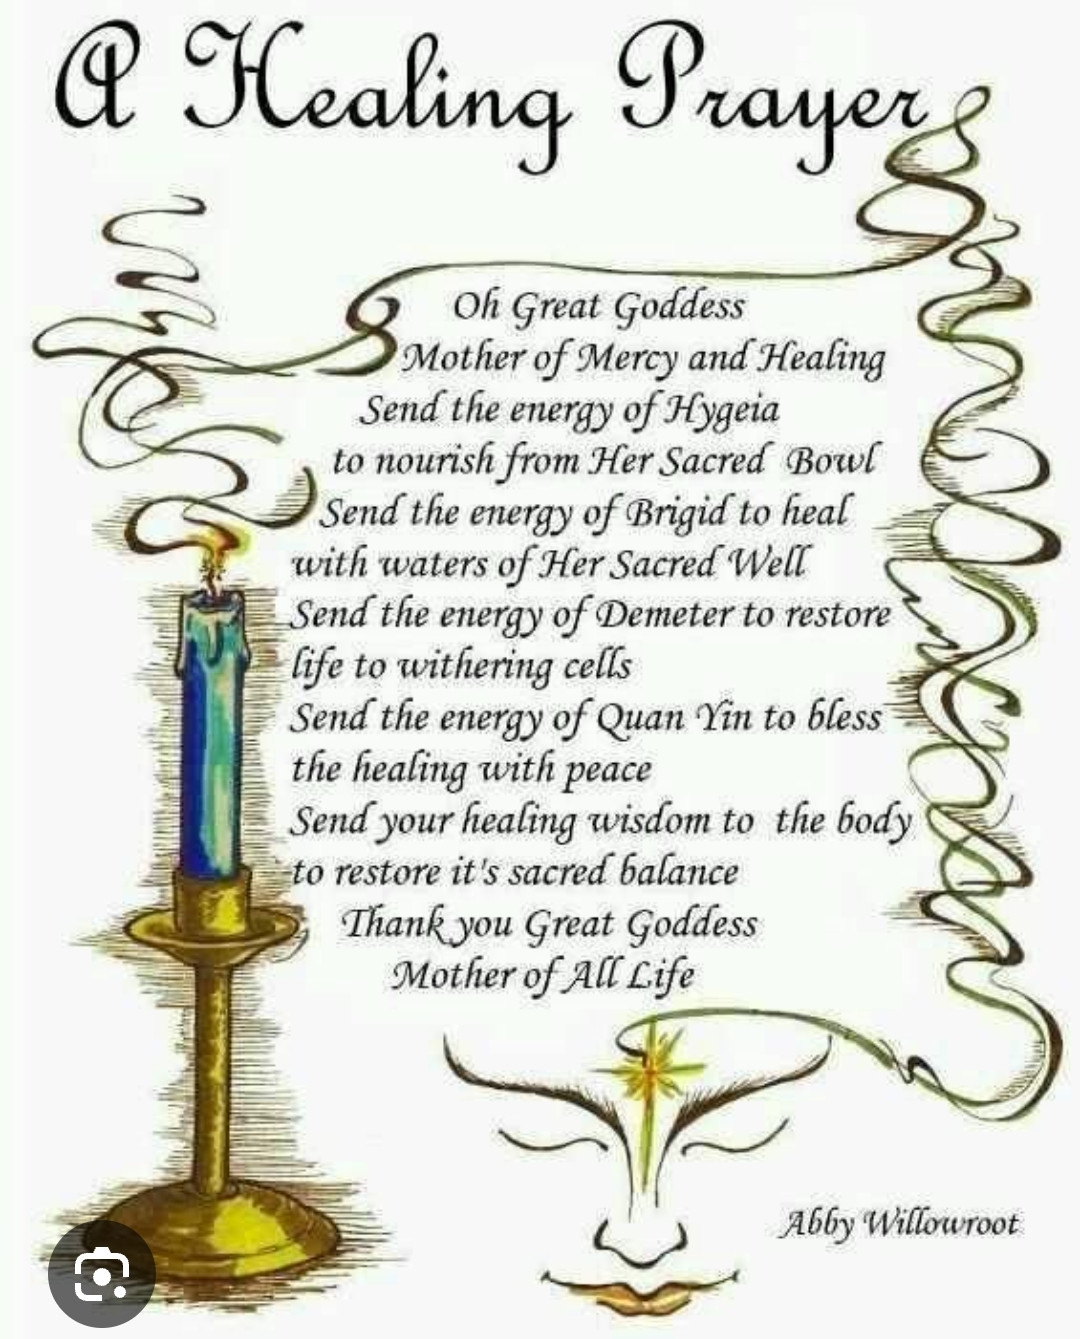 A Healing Prayer
Oh Great Goddess
Mother of Mercy and Healing
Send the energy of Hygeia
to nourish from Her Sacred Bowl
Send the energy of Brigid to heal
with waters of Her Sacred Well
Send the energy of Demeter to restore
life to withering cells
Send the energy of Quan Yin to bless
the healing with peace
Send your healing wisdom to the body
to restore it's sacred balance
Thank you Great Goddess
Mother of All Life
Abby Willowroot